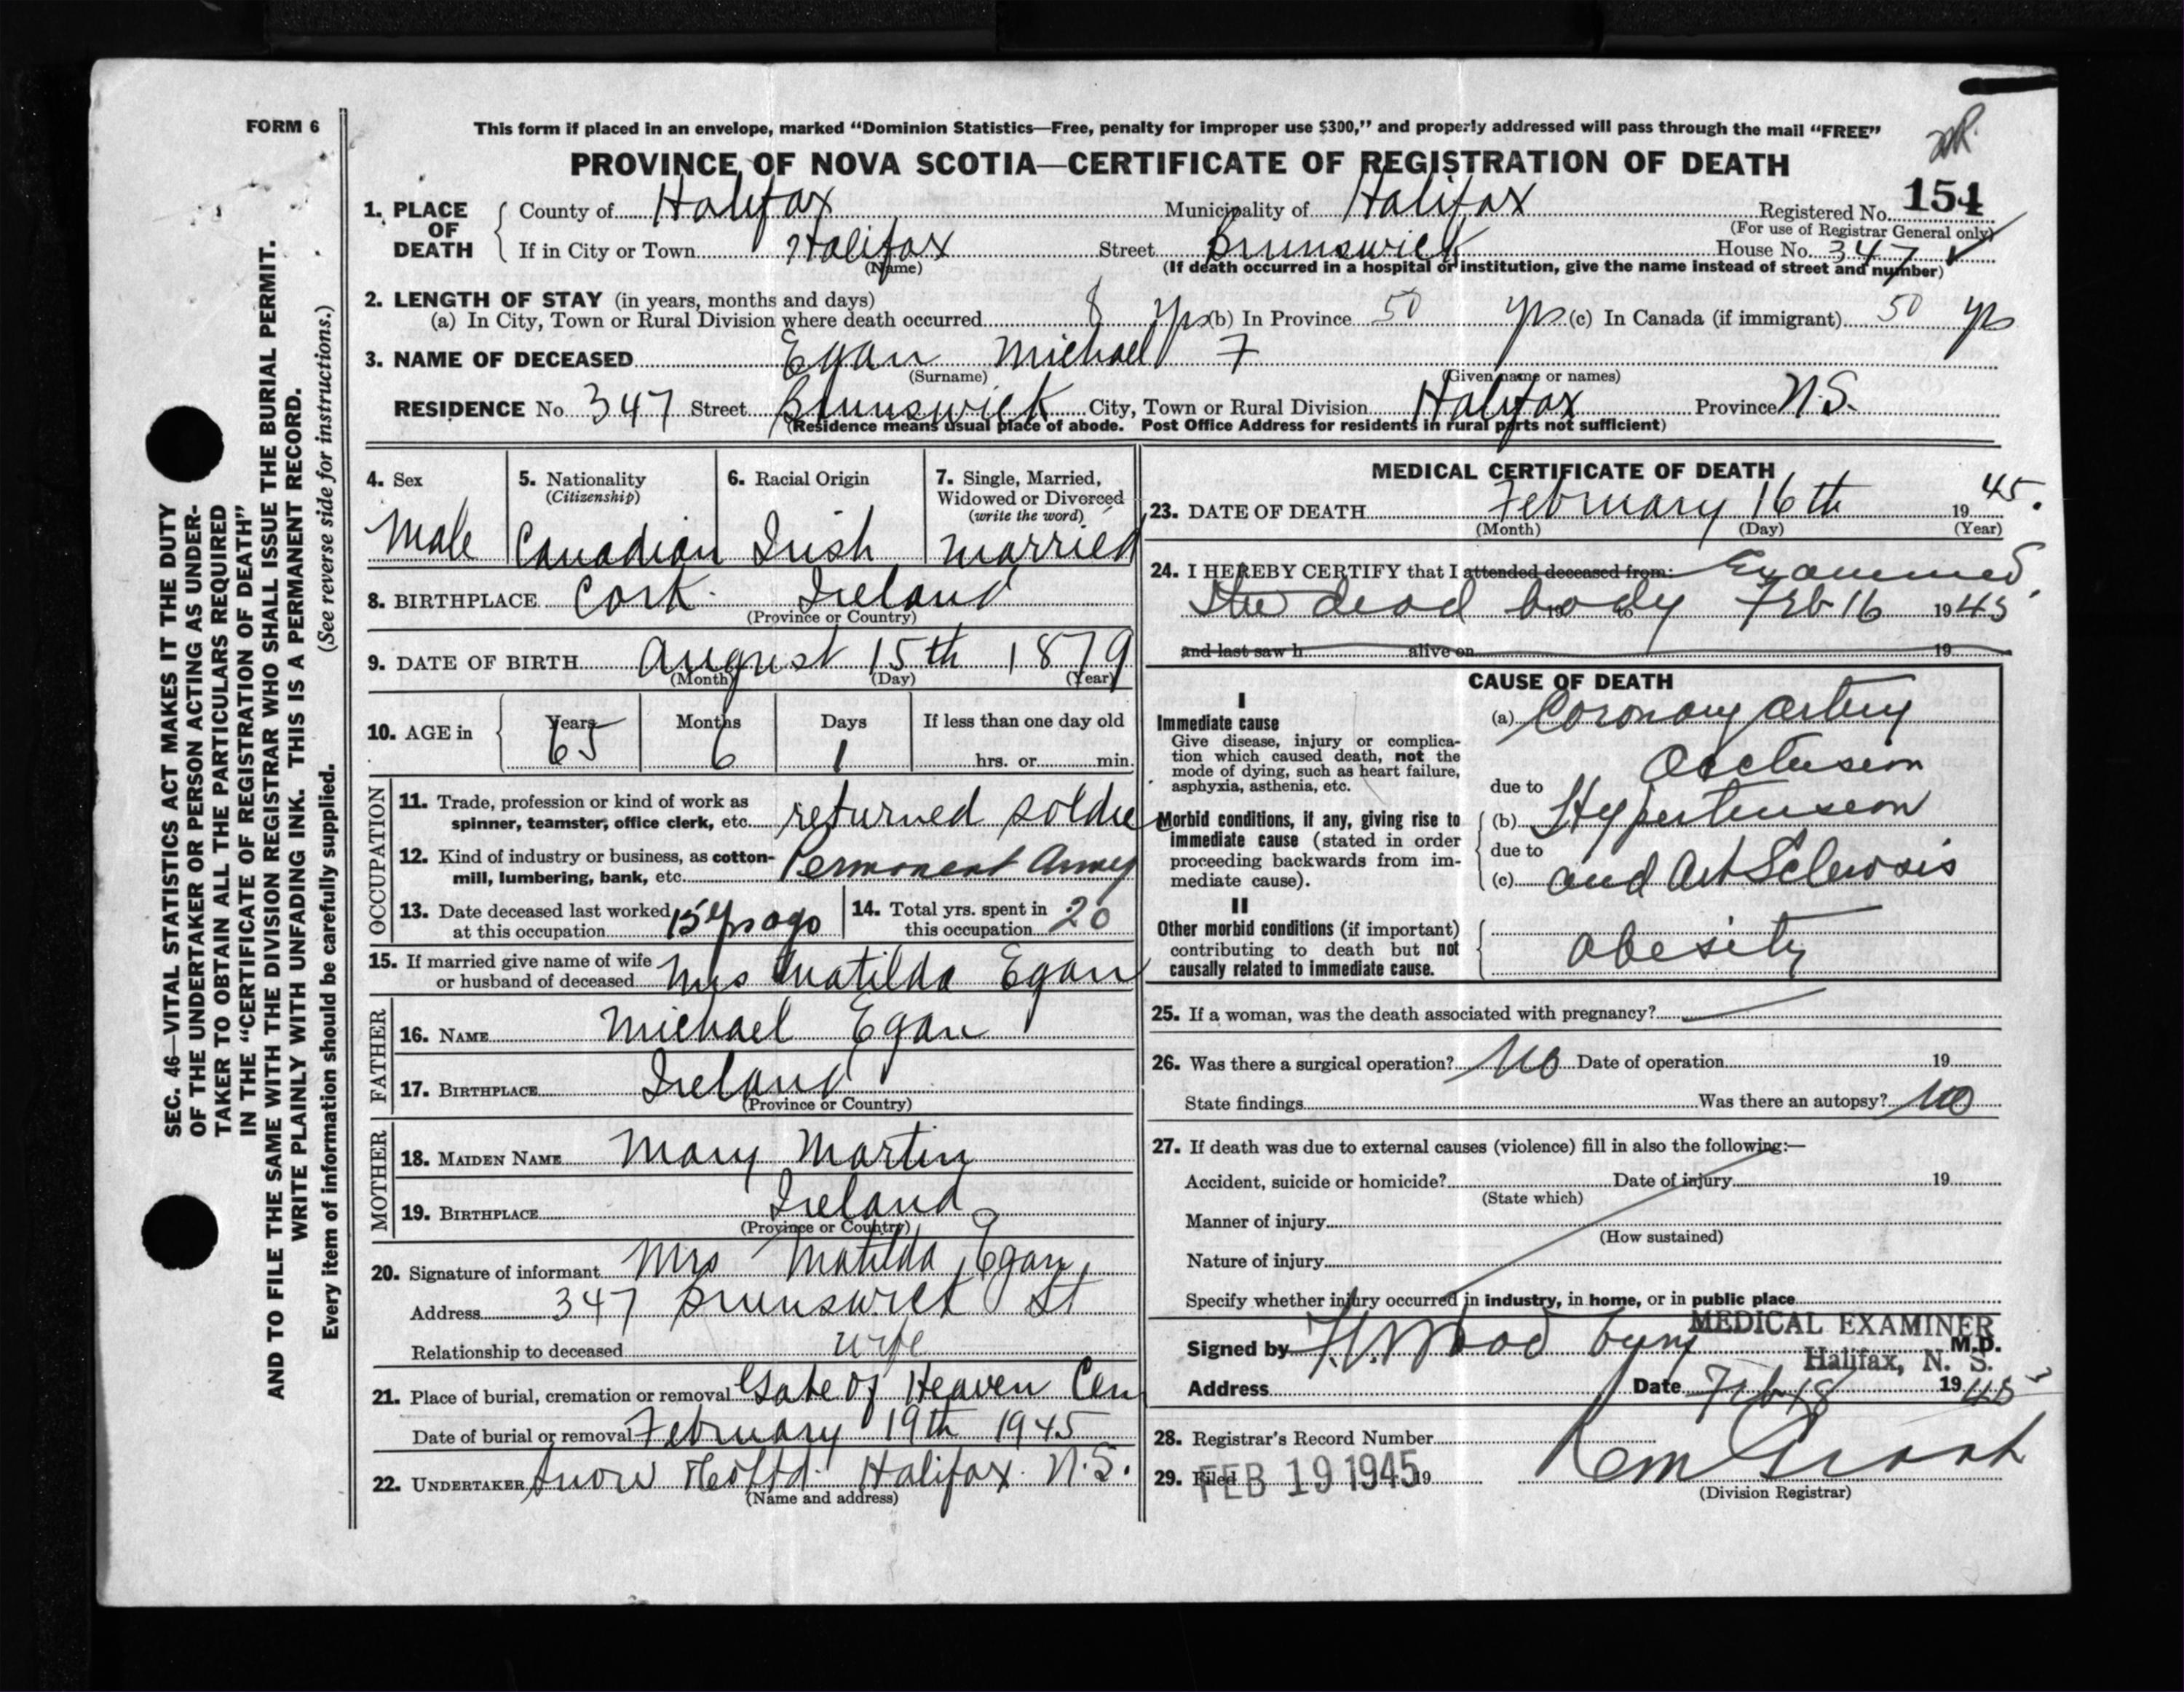 FORM 6
This form if placed in an envelope, marked “Dominion Statistics—Free, penalty for improper use $300,” and properly addressed will pass through the mail “FREE”
PROVINCE OF NOVA SCOTIA—CERTIFICATE OF REGISTRATION OF DEATH
1. PLACE OF DEATH
County of Halifax Municipality of Halifax Registered No. 154
(For use of Registrar General only)
If in City or Town Halifax Street Brunswick House No. 347
(Name) (If death occurred in a hospital or institution, give the name instead of street and number)
2. LENGTH OF STAY (in years, months and days)
(a) In City, Town or Rural Division where death occurred 8 yrs (b) In Province 50 yrs (c) In Canada (if immigrant) 50 yrs
3. NAME OF DECEASED Egan Michael F
(Surname) (Given name or names)
RESIDENCE No. 347 Street Brunswick City, Town or Rural Division Halifax Province N.S.
(Residence means usual place of abode. Post Office Address for residents in rural parts not sufficient)
4. Sex
Male
5. Nationality
(Citizenship)
Canadian
6. Racial Origin
Irish
7. Single, Married,
Widowed or Divorced
(write the word)
Married
8. BIRTHPLACE Cork. Ireland
(Province or Country)
9. DATE OF BIRTH August 15th 1879
(Month) (Day) (Year)
10. AGE in Years Months Days If less than one day old
65 6 1 hrs. or min.
OCCUPATION
11. Trade, profession or kind of work as
spinner, teamster, office clerk, etc. returned soldier
12. Kind of industry or business, as cotton-
mill, lumbering, bank, etc. Permanent Army
13. Date deceased last worked
at this occupation 15 yrs ago
14. Total yrs. spent in
this occupation 20
15. If married give name of wife
or husband of deceased Mrs Matilda Egan
FATHER
16. NAME Michael Egan
17. BIRTHPLACE Ireland
(Province or Country)
MOTHER
18. MAIDEN NAME Mary Martin
19. BIRTHPLACE Ireland
(Province or Country)
20. Signature of informant Mrs Matilda Egan
Address 347 Brunswick St
Relationship to deceased wife
21. Place of burial, cremation or removal Gate of Heaven Cem
Date of burial or removal February 19th 1945
22. UNDERTAKER Snow & Co Ltd. Halifax. N.S.
(Name and address)
MEDICAL CERTIFICATE OF DEATH
23. DATE OF DEATH February 16th 1945.
(Month) (Day) (Year)
24. I HEREBY CERTIFY that I attended deceased from: Examined
the dead body 19 to Feb 16 1945
and last saw h alive on 19
CAUSE OF DEATH
I
Immediate cause
Give disease, injury or complica-
tion which caused death, not the
mode of dying, such as heart failure,
asphyxia, asthenia, etc.
(a) Coronary artery
Occlusion
due to
Morbid conditions, if any, giving rise to
immediate cause (stated in order
proceeding backwards from im-
mediate cause).
(b) Hypertension
due to
(c) and Art Sclerosis
II
Other morbid conditions (if important)
contributing to death but not
causally related to immediate cause.
Obesity
25. If a woman, was the death associated with pregnancy?
26. Was there a surgical operation? No Date of operation 19
State findings Was there an autopsy? No
27. If death was due to external causes (violence) fill in also the following:—
Accident, suicide or homicide? Date of injury 19
(State which)
Manner of injury
(How sustained)
Nature of injury
Specify whether injury occurred in industry, in home, or in public place
MEDICAL EXAMINER
Signed by M.D.
Halifax, N. S.
Address Date Feb 18 1945
28. Registrar's Record Number
29. Filed FEB 19 1945 19
(Division Registrar)
SEC. 46—VITAL STATISTICS ACT MAKES IT THE DUTY
OF THE UNDERTAKER OR PERSON ACTING AS UNDER-
TAKER TO OBTAIN ALL THE PARTICULARS REQUIRED
IN THE “CERTIFICATE OF REGISTRATION OF DEATH”
AND TO FILE THE SAME WITH THE DIVISION REGISTRAR WHO SHALL ISSUE THE BURIAL PERMIT.
WRITE PLAINLY WITH UNFADING INK. THIS IS A PERMANENT RECORD.
Every item of information should be carefully supplied. (See reverse side for instructions.)